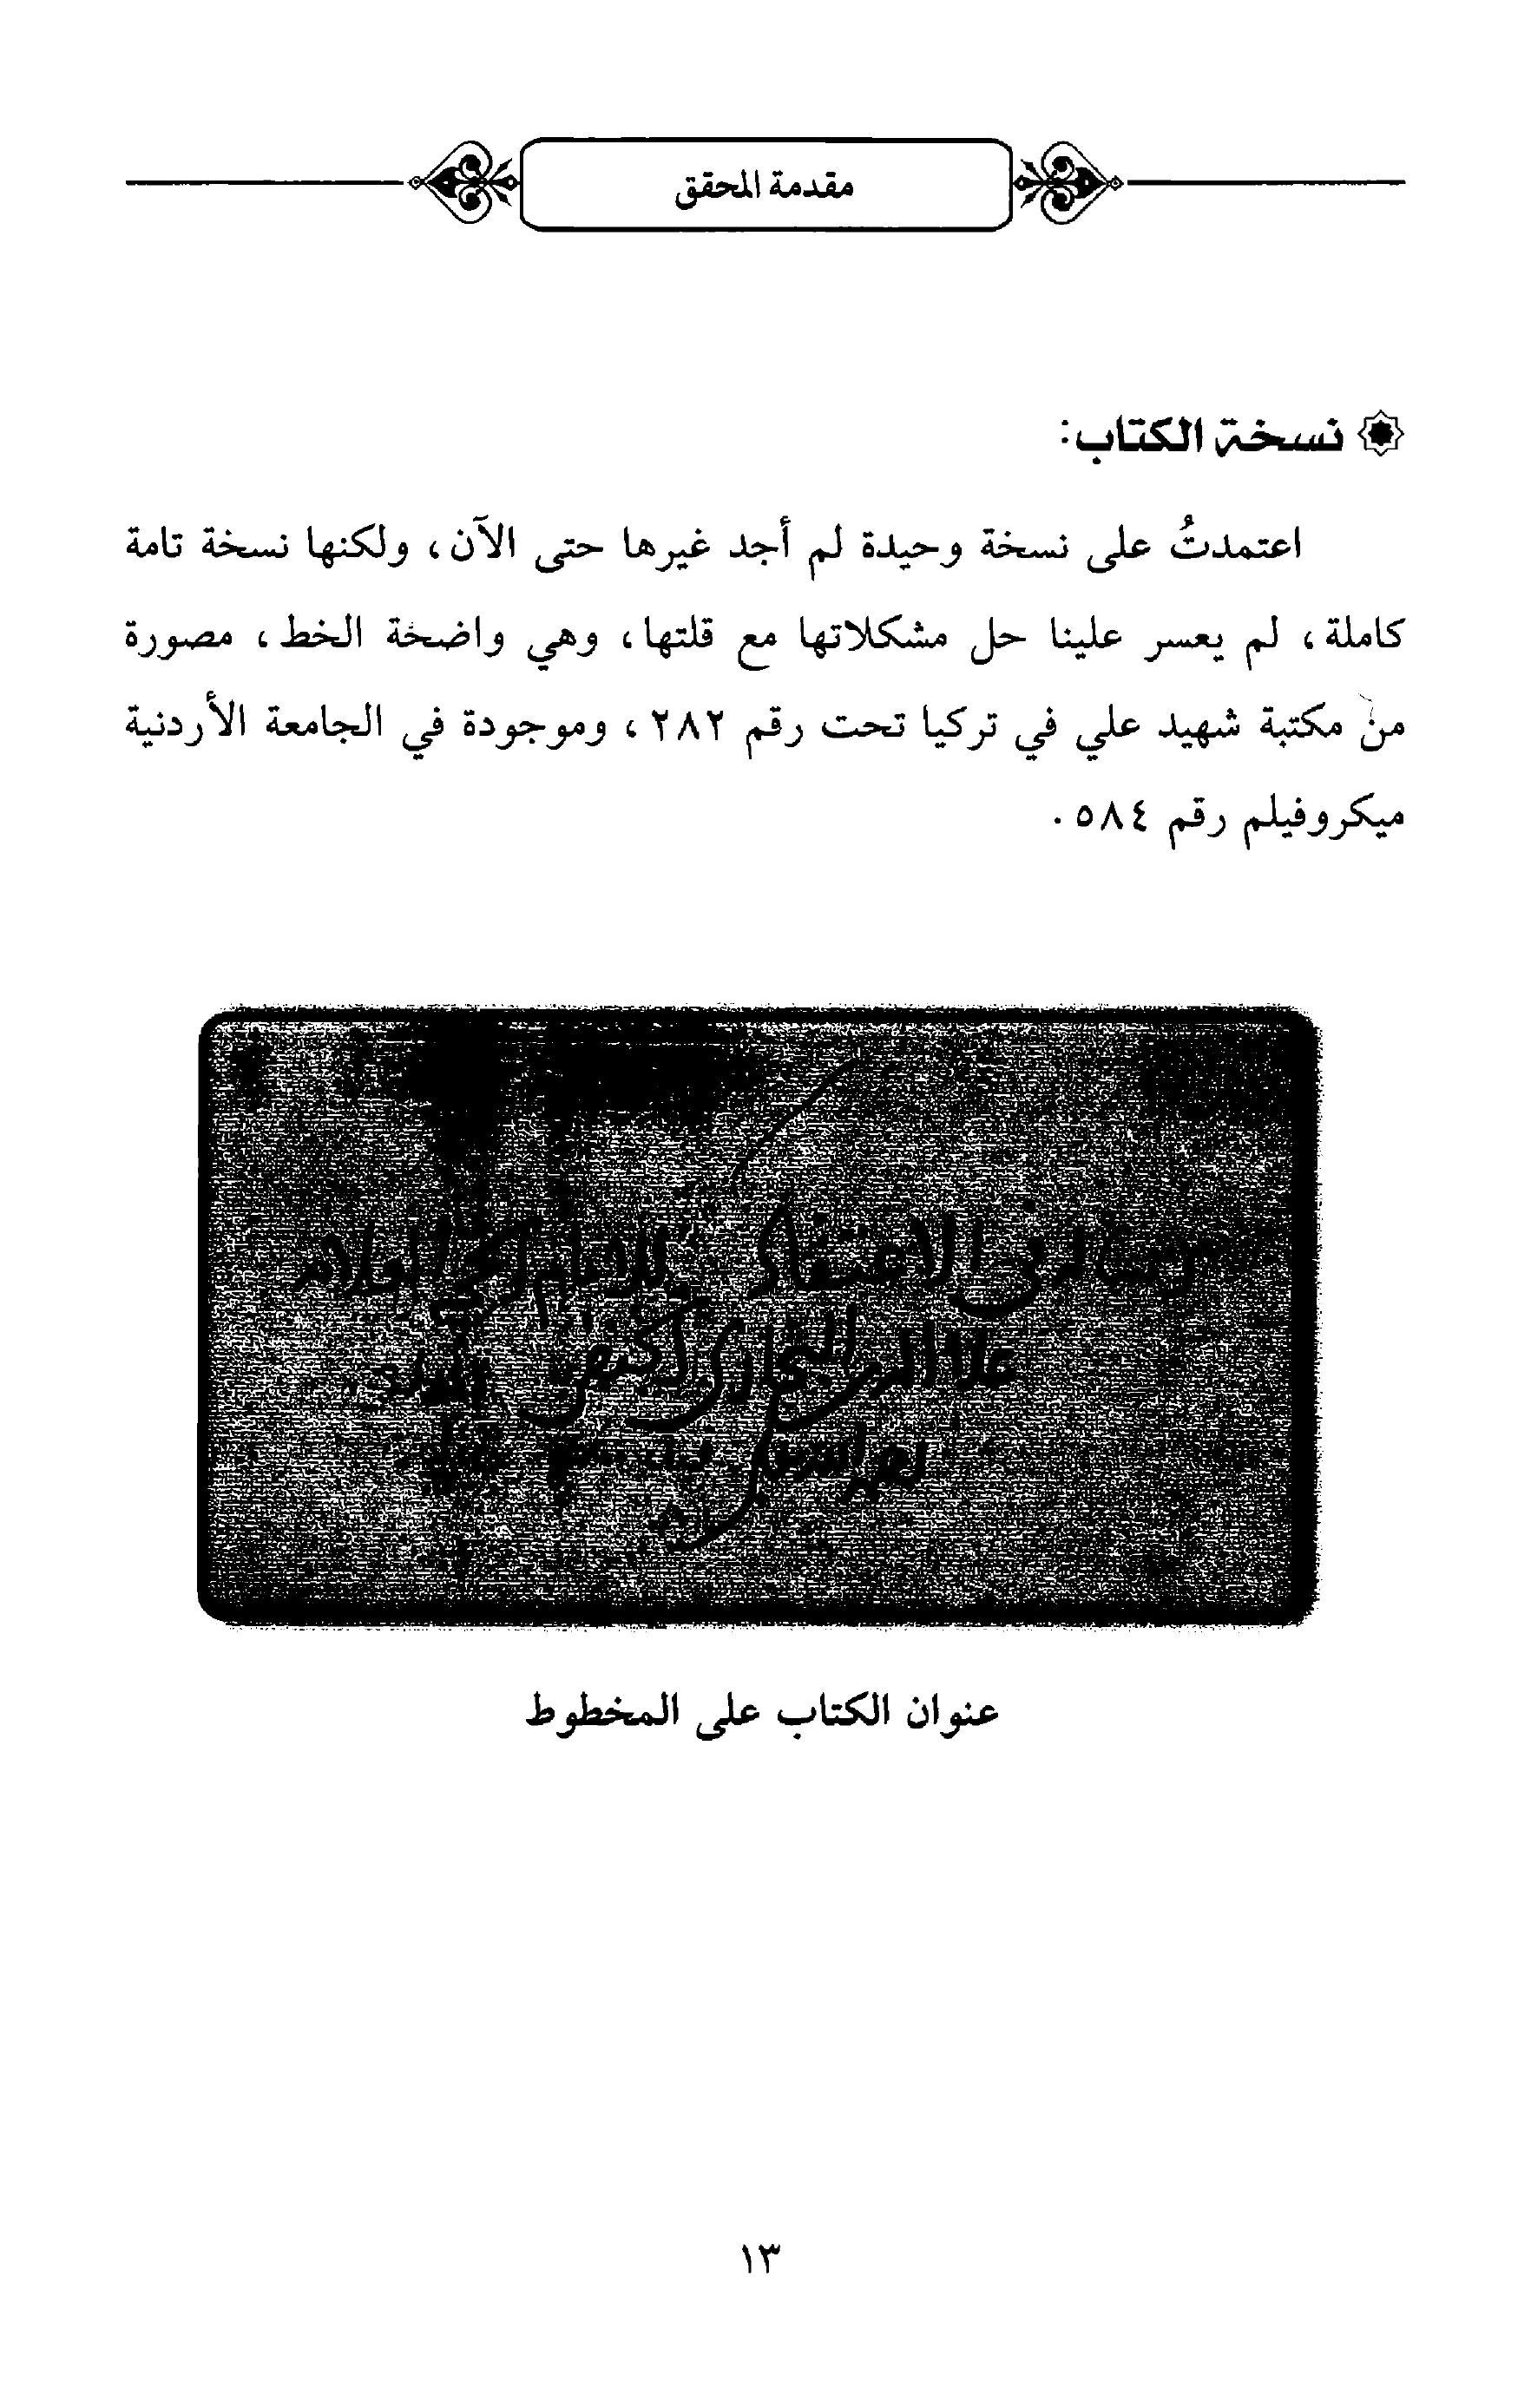 مقدمة المحقق
نسخة الكتاب:
اعتمدتُ على نسخة وحيدة لم أجد غيرها حتى الآن، ولكنها نسخة تامة
كاملة، لم يعسر علينا حل مشكلاتها مع قلتها، وهي واضحة الخط، مصورة
من مكتبة شهيد علي في تركيا تحت رقم ٢٨٢، وموجودة في الجامعة الأردنية
ميكروفيلم رقم ٥٨٤.
رسالة في الاعتقاد للامام العلامه
علا الدين البخاري الحنفي
عنوان الكتاب على المخطوط
١٣